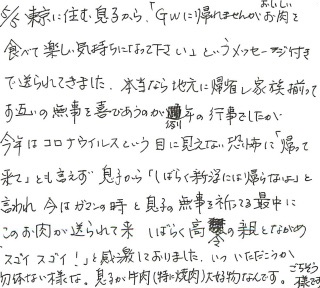 5/5 東京に住む息子から、「GWに帰れませんがおいしいお肉を
食べて楽しい気持ちになって下さい」というメッセージ付き
で送られてきました。本当なら地元に帰省し家族揃って
お互いの無事を喜びあうのが例年の行事でしたが
今年はコロナウイルスという目に見えない恐怖に「帰って
来て」とも言えず息子から「しばらく新潟には帰らないよ」と
言われ今はガマンの時と息子の無事を祈ってる最中に
このお肉が送られて来しばらく高齢の親とながめ
"スゴイスゴイ!"と感激しておりました。いついただこうか
勿体ない様な。息子が牛肉(特に焼肉)大好物なんです。ごちそう様です